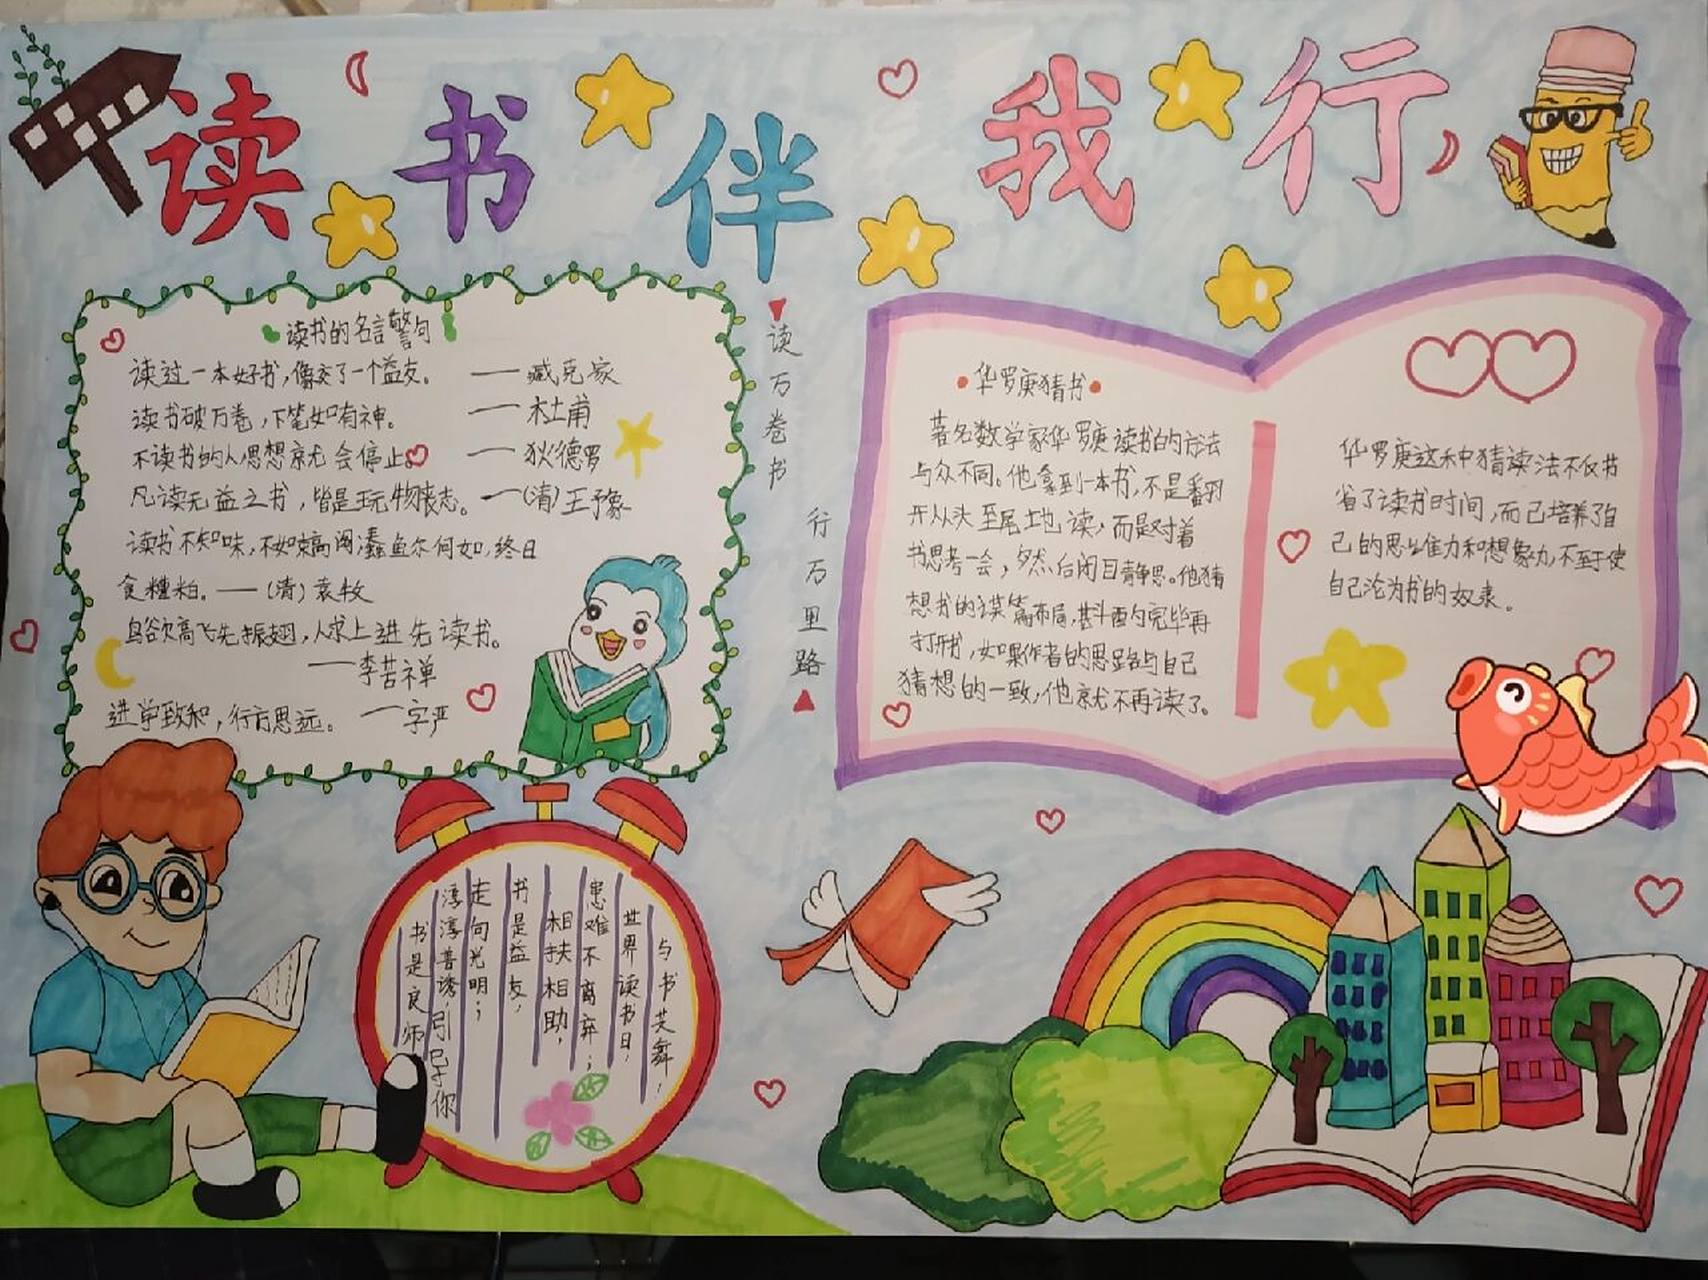 读书伴我行
读书的名言警句
读过一本好书，像交了一个益友。——臧克家
读书破万卷，下笔如有神。——杜甫
不读书的人思想就会停止。——狄德罗
凡读无益之书，皆是玩物丧志。——(清)王豫
读书不知味，不如束高阁；蠹鱼尔何如，终日
食糟粕。——(清)袁牧
鸟欲高飞先振翅，人求上进先读书。
——李苦禅
进学致和，行方思远。——字严
读万卷书
行万里路
华罗庚猜书
著名数学家华罗庚读书的方法
与众不同。他拿到一本书，不是翻
开从头至尾地读，而是对着
书思考一会，然后闭目静思。他猜
想书的谋篇布局，斟酌完毕再
打开书，如果作者的思路与自己
猜想的一致，他就不再读了。
华罗庚这种猜读法不仅节
省了读书时间，而已培养了自
己的思维力和想象力，不至于使
自己沦为书的奴隶。
书是良师
淳淳善诱引导你
走向光明；
书是益友，
相扶相助，
患难不离弃；
世界读书日，
与书共舞！